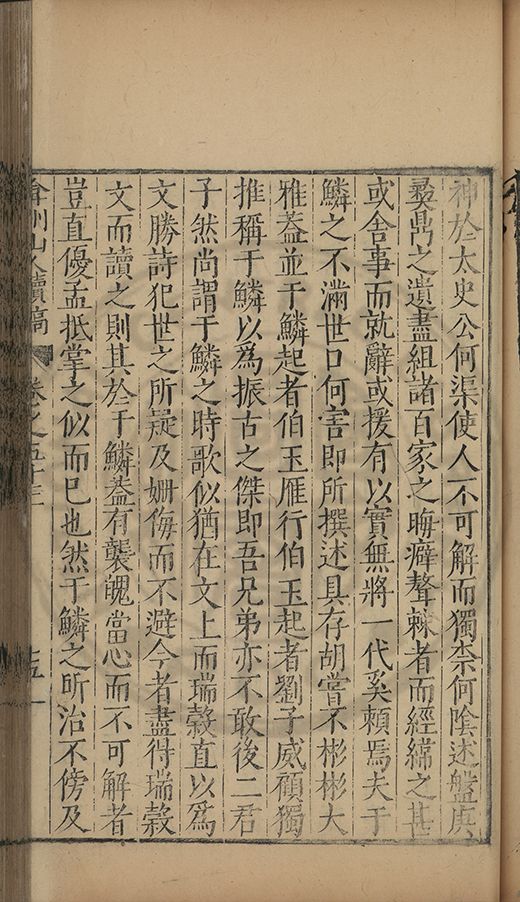 神於太史公何渠使人不可解而獨柰何陰述盤庚
彝鼎之遺盡組諸百家之晦澼聱棘者而經緯之甚
或舍事而就辭或援有以實無將一代奚賴焉夫于
鱗之不滿世口何害即所撰述具存胡嘗不彬彬大
雅葢並于鱗起者伯玉雁行伯玉起者劉子威頋獨
推稱于鱗以爲振古之傑即吾兄弟亦不敢後二君
子然尚謂于鱗之時歌似猶在文上而瑞榖直以爲
文勝詩犯世之所疑及姍侮而不避今者盡得瑞榖
文而讀之則其於于鱗葢有襲魄當心而不可解者
豈直優孟抵掌之似而巳也然于鱗之所治不傍及
弇州山人續稿 卷之五十三 十五